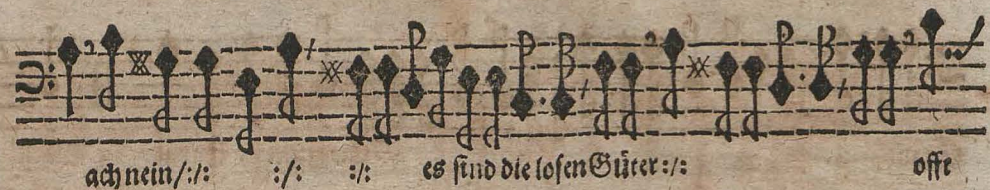 ach nein/:/: :/: :/: es sind die losen Güter:/: offt